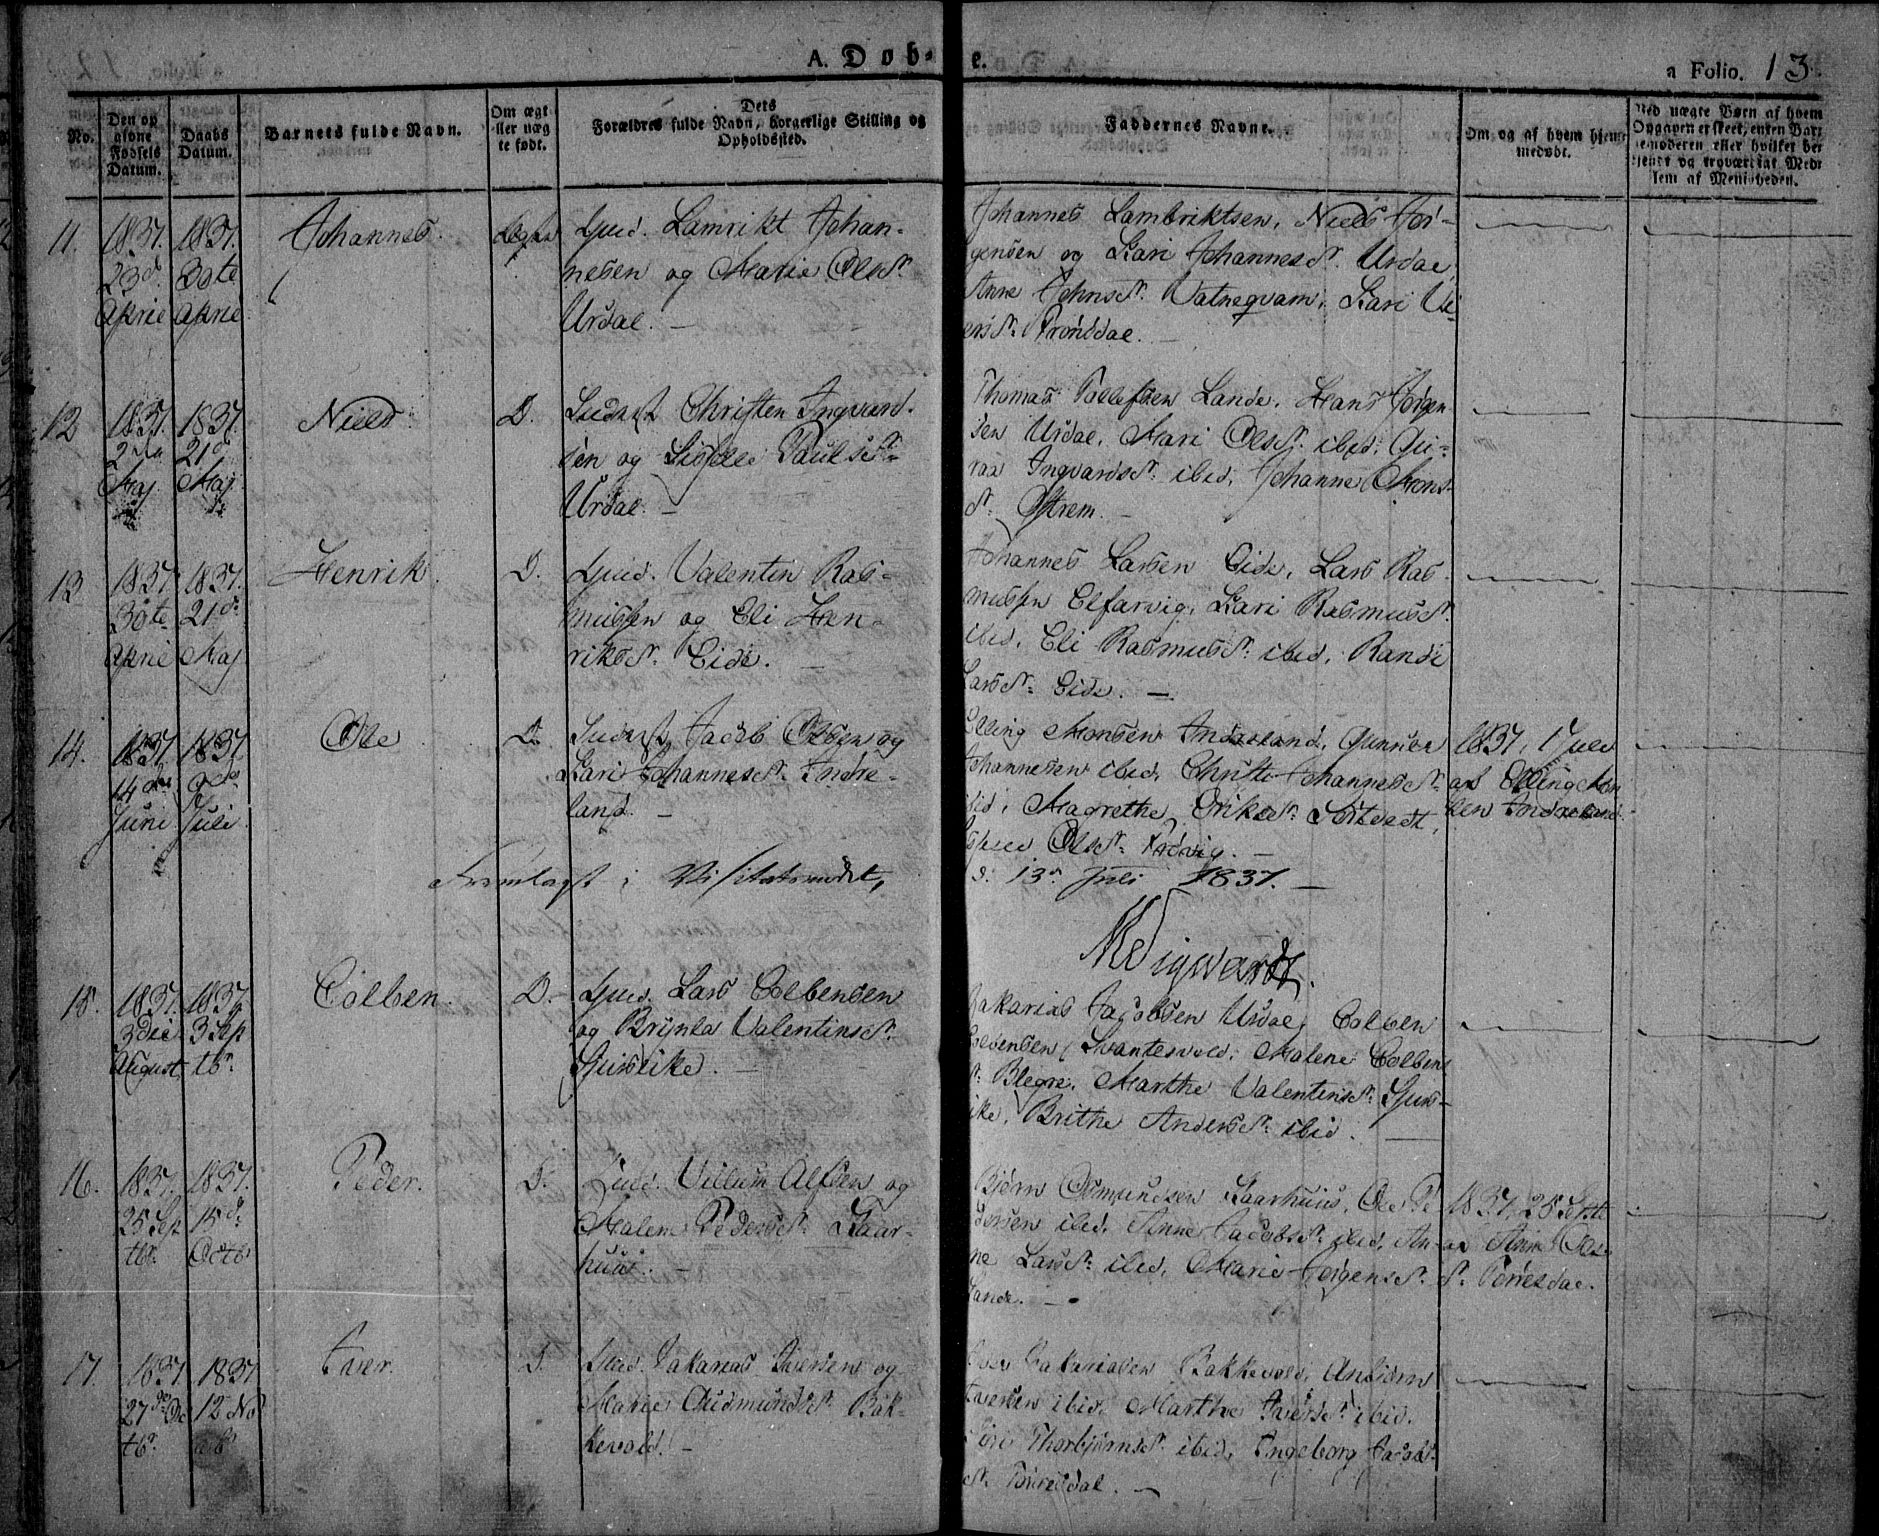 A. Døb-
e.
a Folio. 13.
No.
Den op
givne
Fødsels
Datum.
Daabs
Datum.
Barnets fulde Navn.
Om ægt
eller uæg
te født.
Dets
Forældres fulde Navn, borgerlige Stilling og
Opholdssted.
Faddernes Navne.
Om og af hvem hjemme
medøbt.
Ved uægte Børn af hvem
Opgaven er skeet, enten Bar
nemoderen eller hvilket be
kjendt og troværdigt Med
lem af Menigheden.
11.
1837.
23d.
April
1837.
30te
April
Johannes.
Ægte
Gmd. Lamrikt Johan-
nesen og Marie Olsdr.
Urdal. -
Johannes Lambriktsen, Niels Jør-
gensen og Kari Johannesdr. Urdal,
Anne Johnsdr. Vatneqvam, Kari Iv-
ersdr. Trondsdal. -
12
1837.
2da
Maj
1837.
21d
Maj
Niels
D.
Christen Ingvard-
sen og Paulsdr.
Urdal. -
Thomas Tollefsen Lande, Hans Jørgen
sen Urdal, Mari Olsdr. ibid, Gu-
roa Ingvardsdr. ibid, Johanne Mons-
dr. Østrem. -
13
1837.
30te
April
1837.
21d.
Maj
Henrik
D.
Gmd. Valentin Ras-
mussen og Eli Hen-
riksdr. Eide. -
Johannes Larsen Eide, Lars Ras
mussen Elfarvig, Kari Rasmusdr.
ibid, Eli Rasmusdr. ibid, Randi
Larsdr. Eide. -
14.
1837.
14de
Juni
1837
Juli
Ole
D.
Jacob Olsen og
Kari Johannesdr. Indre-
land. -
Elling Monsen Indreland, Gunner
Johannesen ibid, Christi Johannesdr.
ibid, Magrethe Eriksdr.
Olsdr.
1837, 1 Juli
af Elling Mon
sen Indreland.
Fremlagt i Visitatsmødet,
d. 13d Juli 1837. -
15.
1837.
3die
August
1837
3 Sep
tbr.
Colben.
D.
Gmd. Lars Colbensen
og Brynla Valentinsdr.
Zakarias Jacobsen Urdal, Colben
Colbensen Svantesvold, Malene Colbens
dr. Blegre, Marthe Valentinsdr.
Brithe Andersdr. ibid. -
16.
1837.
25 Sep
tbr.
1837.
15d.
Octbr
Peder.
D.
Villum Alfsen og
Malene Pedersdr. Kaar-
huus. -
Bjørn Osmundsen Kaarhuus, Ole Pe
dersen ibid, Anne Jacobsdr. ibid, An-
ne Larsdr. ibid, Marie Jørgensdr.
Lande. -
1837, 25 Septb
af Anne Ols-
dr. Tørresdal.
17.
1837
27de Oc
tbr.
1837
12 No
vbr
Iver.
D.
Gmd. Zakarias Iversen og
Marie Gudmundsdr. Bak-
kevold. -
Iver Zakariasen Bakkevold, Anbiørn
Iversen ibid, Marthe Iversdr. ibid.
Siri Thorbjørnsdr. ibid, Ingeborg Jacobs-
dr. Tørresdal. -